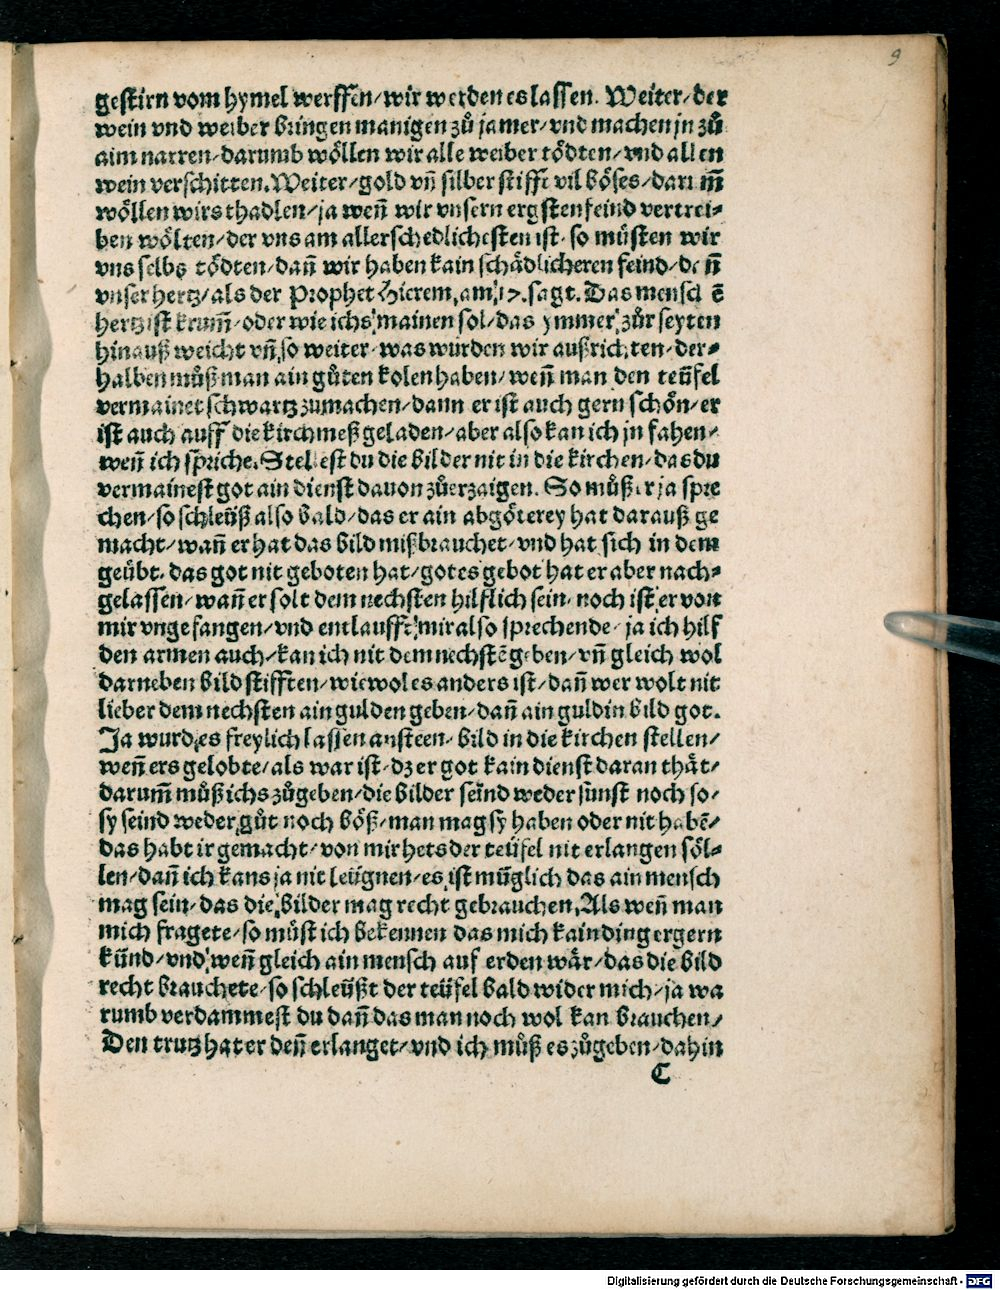 9
gestirn vom hymel werffen/ wir werden es lassen. Weiter/ der
wein vnd weiber bringen manigen zuͦ jamer/ vnd machen jn zuͦ
aim narren/ darumb woͤllen wir alle weiber toͤdten/ vnd allen
wein verschitten. Weiter/ gold vñ silber stifft vil boͤses/ darum̃
woͤllen wirs thadlen/ ja weñ wir vnsern ergsten feind vertrei⸗
ben woͤlten/ der vns am allerschedlichesten ist/ so muͤsten wir
vns selbs toͤdten/ dañ wir haben kain schaͤdlicheren feind/ deñ
vnser hertz/ als der Prophet Hierem. am. 17. sagt. Das menscl ẽ
hertz ist krum̃/ oder wie ichs mainen sol/ das ymmer zuͦr seyten
hinauß weicht vñ so weiter/ was wurden wir außrichten/ der⸗
halben muͦß man ain guͦten kolen haben/ weñ man den teuͤfel
vermainet schwartz zumachen/ dann er ist auch gern schoͤn/ er
ist auch auff die kirchmeß geladen/ aber also kan ich jn fahen/
weñ ich spriche. Stellest du die bilder nit in die kirchen/ das du
vermainest got ain dienst dauon zuͦerzaigen. So muͦß er ja spre
chen/ so schleuͤß also bald/ das er ain abgoͤterey hat darauß ge
macht/ wañ er hat das bild mißbrauchet/ vnd hat sich in dem
geuͤbt/ das got nit geboten hat/ gotes gebot hat er aber nach⸗
gelassen/ wañ er solt dem nechsten hilflich sein/ noch ist er von
mir vngefangen/ vnd entlaufft mir also sprechende/ ja ich hilf
den armen auch/ kan ich nit dem nechstẽ geben/ vñ gleich wol
darneben bild stifften/ wiewol es anders ist/ dañ wer wolt nit
lieber dem nechsten ain gulden geben/ dañ ain guldin bild got.
Ja wurd es freylich lassen ansteen/ bild in die kirchen stellen/
weñ ers gelobte/ als war ist/ dz er got kain dienst daran thaͤt/
darum̃ muͦß ichs zuͦgeben/ die bilder seind weder sunst noch so/
sy seind weder guͦt noch boͤß/ man mag sy haben oder nit habẽ/
das habt ir gemacht/ von mir hets der teuͤfel nit erlangen soͤl⸗
len/ dañ ich kans ja nit leuͤgnen/ es ist muͤglich das ain mensch
mag sein/ das die bilder mag recht gebrauchen. Als weñ man
mich fragete/ so muͤst ich bekennen das mich kain ding ergern
kuͤnd/ vnd weñ gleich ain mensch auf erden waͤr/ das die bild
recht brauchete/ so schleuͤßt der teuͤfel bald wider mich/ ja wa
rumb verdammest du dañ das man noch wol kan brauchen/
Den trutz hat er deñ erlanget/ vnd ich muͦß es zuͦgeben/ dahin
C
Digitalisierung gefördert durch die Deutsche Forschungsgemeinschaft - DFG